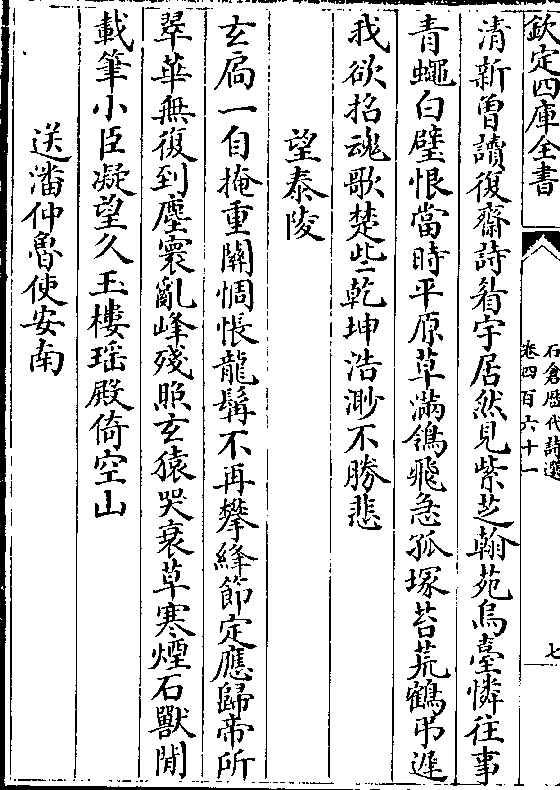 欽定四庫全書
石倉歷代詩選
卷四百六十一
七
清新曾讀復齋詩眉宇居然見紫芝翰苑烏臺憐往事
青蠅白璧恨當時平原草滿鴒飛急孤塚苔荒鶴弔遲
我欲招魂歌楚些乾坤浩渺不勝悲
望泰陵
玄扃一自掩重關惆悵龍髯不再攀絳節定應歸帝所
翠華無復到塵寰亂峰殘照玄猿哭衰草寒煙石獸閒
載筆小臣凝望久玉樓瑶殿倚空山
送潘仲魯使安南